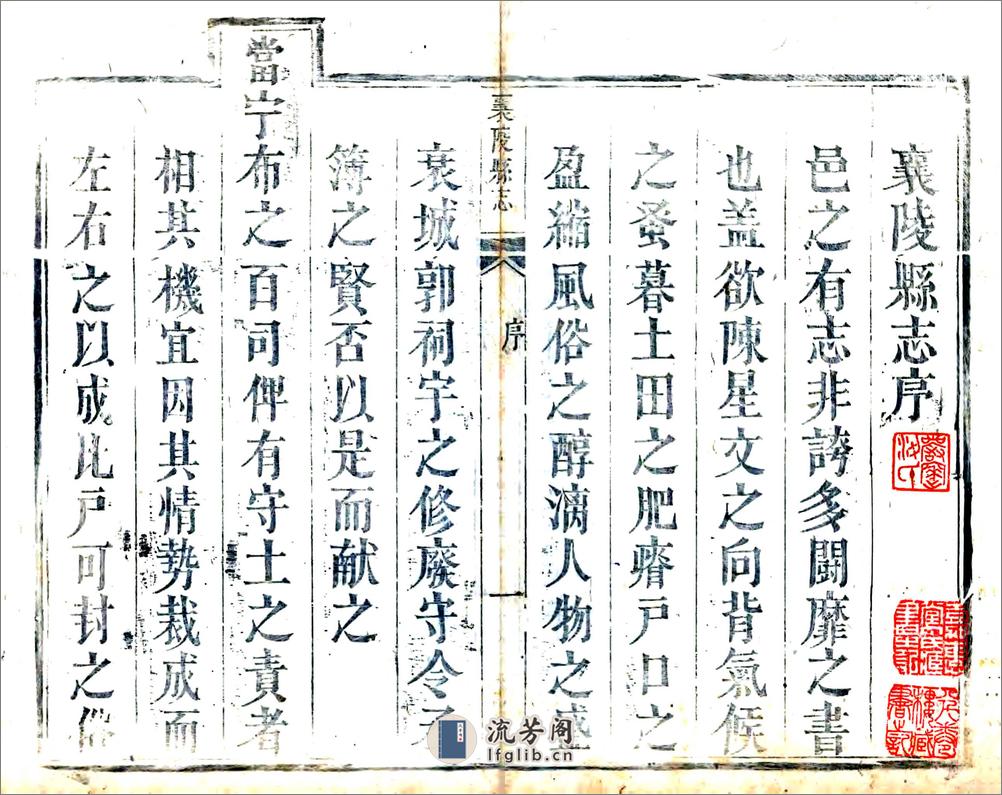 襄陵縣志序
邑之有志非誇多鬪靡之書
也盖欲陳星文之向背氣候
之蚤暮土田之肥瘠戸口之
盈縮風俗之醇漓人物之盛
襄陵縣志
序
一
衰城郭祠宇之修廢守令
簿之賢否以是而献之
當宁布之百司俾有守土之責者
相其機宜因其情勢裁成而
左右之以成比戸可封之俗
流芳阁
lfglib.cn